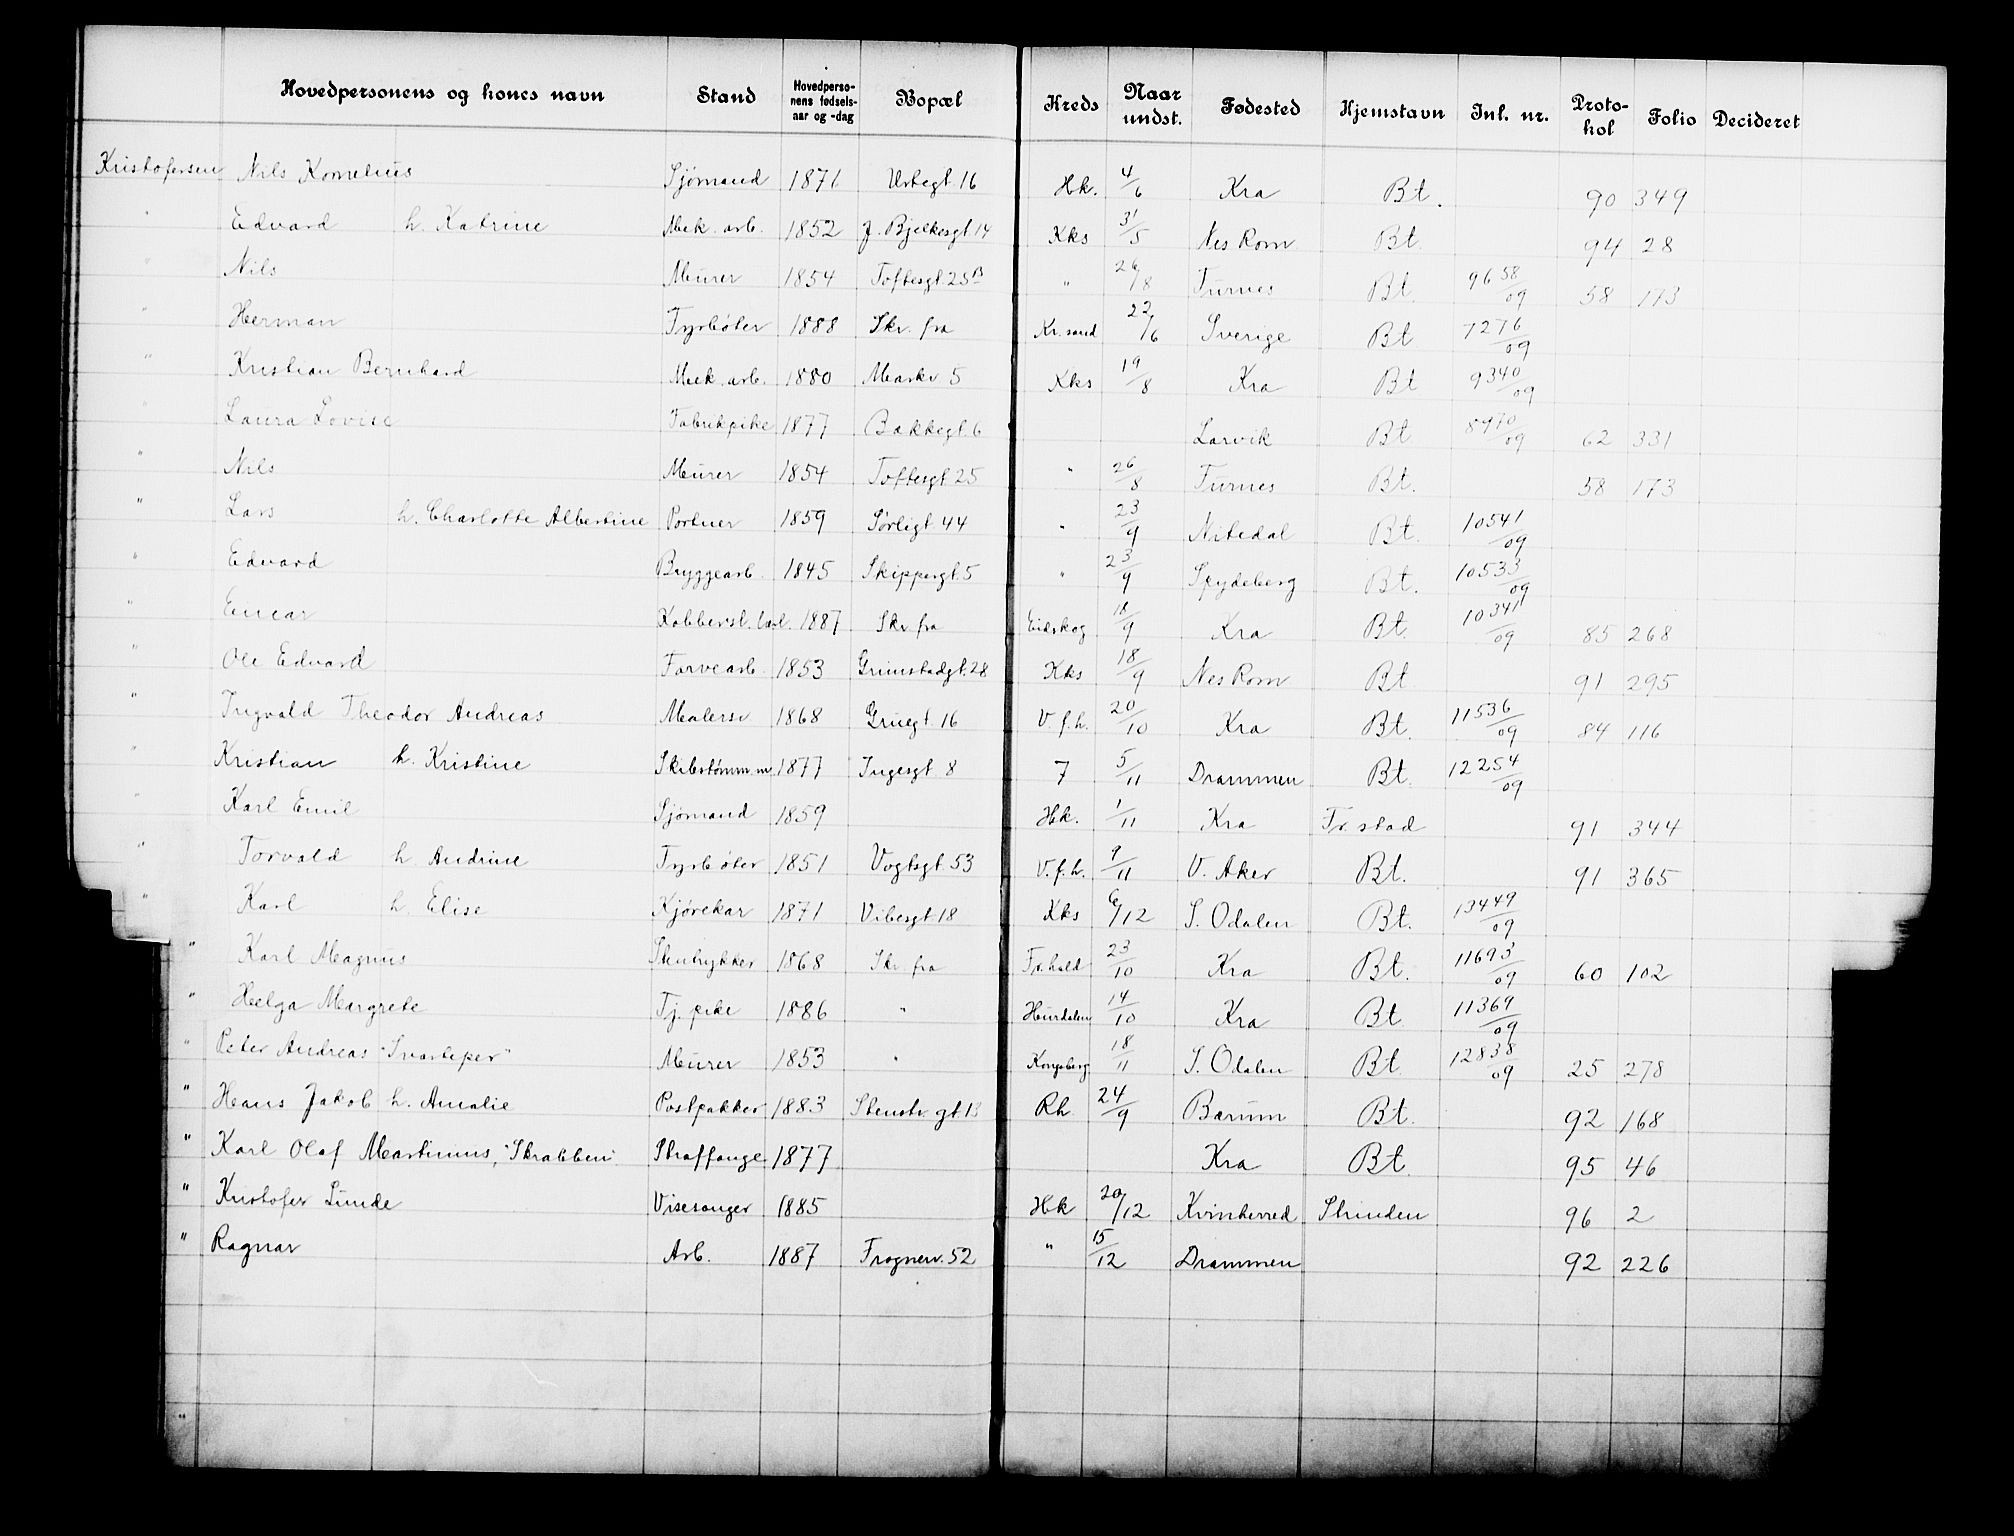 Hovedpersonens og kones navn Stand Hovedpersonens fødselsaar og -dag Bopæl Kreds Naar undst. Fødested Hjemstavn Inl. nr. Protokol Folio Decideret
Kristofersen Nils Kornelius Sjømand 1871 Urtegt. 16 Hk. 4/6 Kra Bt. 90 349
" Edvard h. Katrine Mek. arb. 1852 J. Bjelkesgt 14 Kks 31/5 Nes Rom Bt. 94 28
" Nils Murer 1854 Toftesgt. 25B " 26/8 Furnes Bt 9658/09 58 173
" Herman Fyrbøter 1888 Skr. fra Kr.sand 22/6 Sverige Bt 7276/09
" Kristian Bernhard Mek. arb. 1880 Markv 5 Kks 19/8 Kra Bt 9340/09
" Laura Lovise Fabrikpike 1877 Bakkegt. 6 Larvik Bt 8970/09 62 331
" Nils Murer 1854 Toftesgt 25 " 26/8 Furnes Bt. 58 173
" Lars h. Charlotte Albertine Portner 1859 Sørligt 44 " 23/9 Nitedal Bt. 10541/09
" Edvard Bryggearb. 1845 Skippergt. 5 " 23/9 Spydeberg Bt. 10533/09
" Einar Kobbersl. 1887 Skr. fra Eidskog 18/9 Kra Bt. 10341/09 85 268
" Ole Edvard Farvearb. 1853 Grimstadgt. 28 Kks 18/9 Nes Rom Bt 91 295
" Ingvald Theodor Andreas Malersv 1868 Gruegt. 16 V.f.h. 20/10 Kra Bt. 11536/09 84 116
" Kristian h. Kristine Skibstømm.m 1877 Ingesgt 8 7 5/11 Drammen Bt. 12254/09
" Karl Emil Sjømand 1859 Hk. 1/11 Kra Fr.stad 91 344
" Torvald h. Andrine Fyrbøter 1851 Vogtsgt. 53 V.f.h. 9/11 V. Aker Bt. 91 365
" Karl h. Elise Kjørekar 1871 Vibesgt. 18 Kks 6/12 S. Odalen Bt. 13449/09
" Karl Magnus Stentrykker 1868 Skr. fra Fr.hald 23/10 Kra Bt. 11693/09 60 102
" Helga Margrete Tj. pike 1886 " Hurdalen 14/10 Kra Bt. 11369/09
" Peter Andreas "Svarteper" Murer 1853 " Kongsberg 18/11 S. Odalen Bt. 12838/09 25 278
" Hans Jakob h. Amalie Postpakker 1883 Stenstr. gt. 13 Rh. 24/9 Bærum Bt. 92 168
" Karl Olaf Martinius, "Skrabben" Straffange 1877 Kra Bt. 95 46
" Kristofer Lunde Visesanger 1885 Hk 20/12 Kvinherred Strinden 96 2
" Ragnar Arb. 1887 Frognerv. 52 " 15/12 Drammen 92 226
"